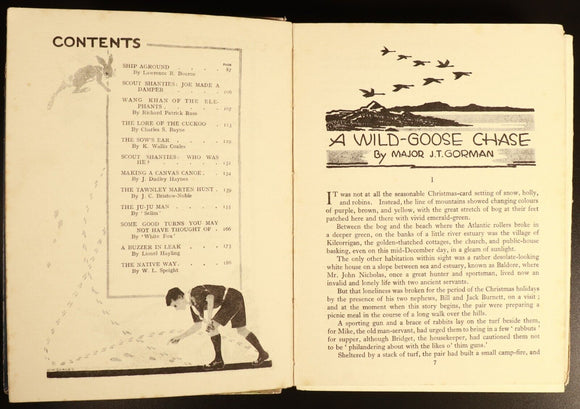 CONTENTS
PAGE
SHIP AGROUND . . . . 87
By Lawrence R. Bourne
SCOUT SHANTIES: JOE MADE A
DAMPER . . . . 106
WANG KHAN OF THE ELE-
PHANTS . . . . 107
By Richard Patrick Russ
THE LORE OF THE CUCKOO . 123
By Charles S. Bayne
THE SOW'S EAR . . . .
By K. Wallis Coales
SCOUT SHANTIES: WHO WAS
HE? . . . .
MAKING A CANVAS CANOE .
By J. Dudley Haynes
THE TAWNLEY MARTEN HUNT . 139
By J. C. Bristow-Noble
THE JU-JU MAN . . . . 155
By 'Selim'
SOME GOOD TURNS YOU MAY
NOT HAVE THOUGHT OF . 166
By 'White Fox'
A BUZZER IN LEAK . . . 173
By Lionel Hayling
THE NATIVE WAY . . . . 186
By W. L. Speight
A WILD-GOOSE CHASE
By MAJOR J.T. GORMAN
I
IT was not at all the seasonable Christmas-card setting of snow, holly,
and robins. Instead, the line of mountains showed changing colours
of purple, brown, and yellow, with the great stretch of bog at their feet
patched here and there with vivid emerald-green.
Between the bog and the beach where the Atlantic rollers broke in
a deeper green, on the banks of a little river estuary was the village of
Kileorrigan, the golden-thatched cottages, the church, and public-house
basking, even on this mid-December day, in a gleam of sunlight.
The only other habitation within sight was a rather desolate-looking
white house on a slope between sea and estuary, known as Baldore, where
Mr. John Nicholas, once a great hunter and sportsman, lived now an
invalid and lonely life with two ancient servants.
But that loneliness was broken for the period of the Christmas holidays
by the presence of his two nephews, Bill and Jack Burnett, on a visit;
and at the moment when this story begins, the pair were preparing a
picnic meal in the course of a long walk over the hills.
A sporting gun and a brace of rabbits lay on the turf beside them,
for Mike, the old man-servant, had urged them to bring in a few 'rabbuts'
for supper, although Bridget, the housekeeper, had cautioned them not
to be 'philandering about with the likes o' thim guns.'
Sheltered by a stack of turf, the pair had built a small camp-fire, and
7